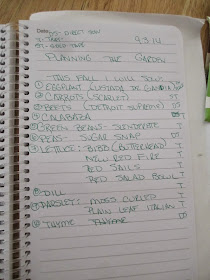 Date:
DS - DIRECT SOW
T - TRAY
9-3-14
PLANNING THE GARDEN
THIS FALL I WILL SOW:
① EGGPLANT (LISTADA DE GANDIA) T
② CARROTS (SCARLET) DS
③ BEETS (DETROIT SUPREME) DS
④ CALABAZA DS
⑤ GREEN BEANS - SLENDERETTE
⑥ PEAS - SUGAR SNAP DS
⑦ LETTUCE: BIBB (BUTTERHEAD) T
NEW RED FIRE T
RED SAILS T
RED SALAD BOWL T
DILL T
PARSLEY: MOSS CURLED T
PLAIN LEAF ITALIAN T
THYME